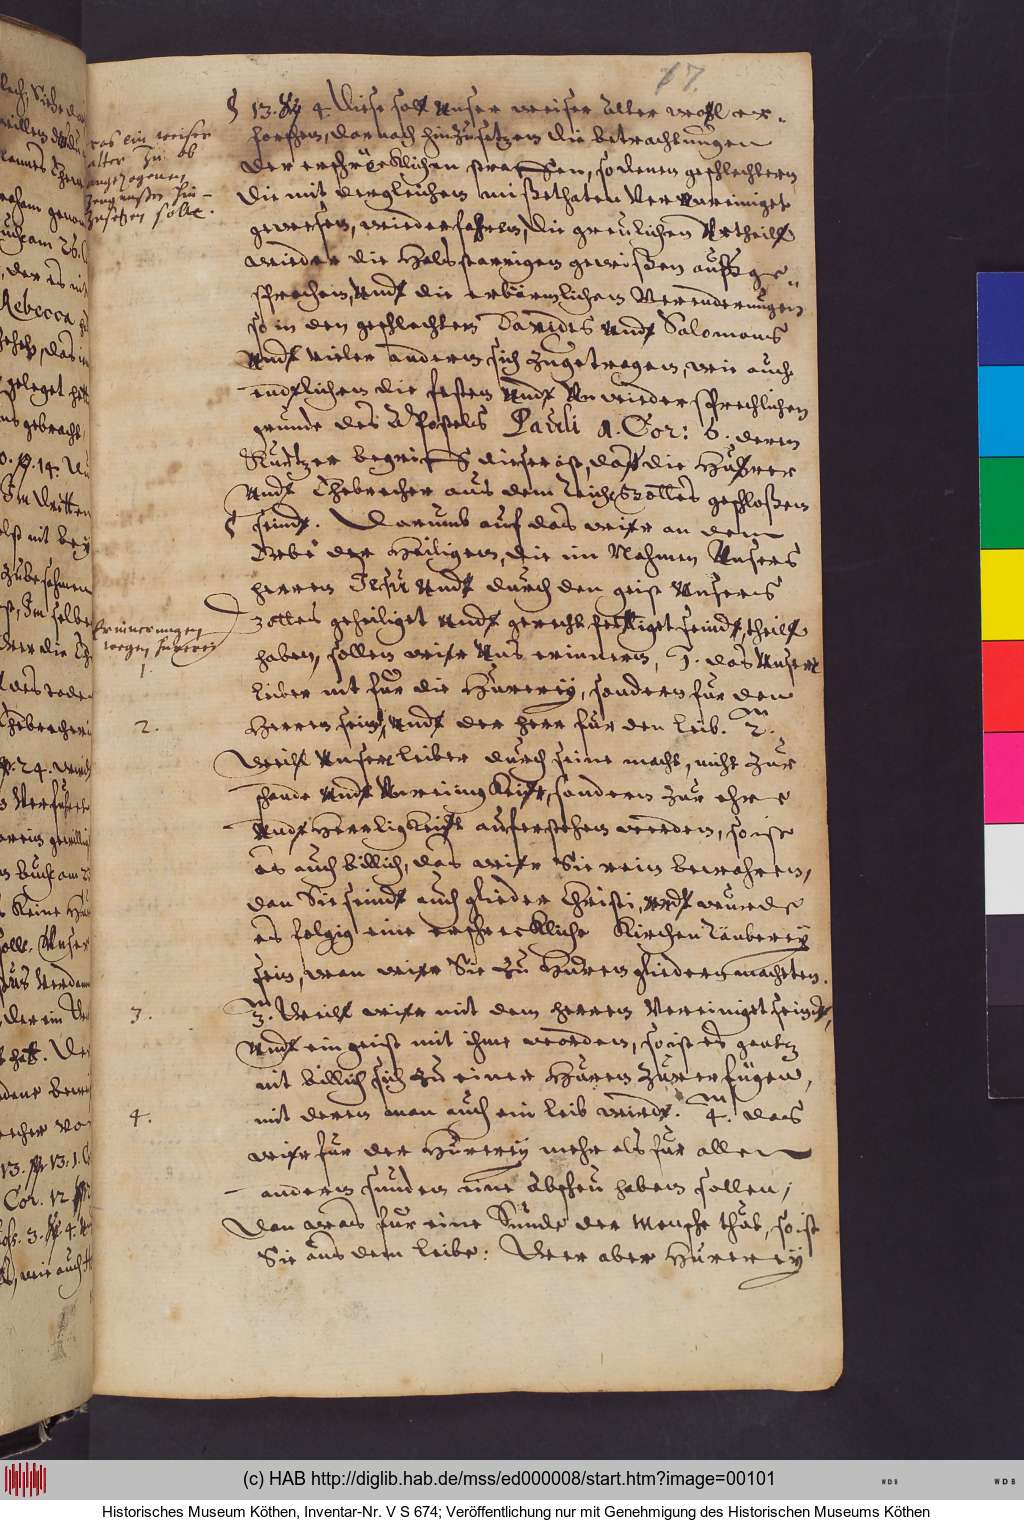 17.
§ 13. 4. Diese soll Unser weiser alter wohl er-
forschen, darnach hinzusetzen die betrachtungen
der erschröcklichen straffen, so denen geschlechtern
die mit dergleichen mißethaten Verunreiniget
gewesen, wiederfahren, die greulichen Urtheill
wieder die Halsstarrigen gewißen auß ge-
sprochen, Undt die erbärmlichen Verenderungen
so in den geschlechtern Davidis Undt Salomonis
Undt vieler anderen sich zugetragen, wie auch
endtlichen die festen Undt Unwiedersprechlichen
grunde des Apostels Pauli 1. Cor: 6. deren
Kurtzer begriff dieser ist, daß die Hurer
Undt Ehebrecher aus dem reich Gottes geschloßen
§ seindt. Darumb auf das wihr an dem
Erbe der Heiligen, die im Nahmen Unsers
herren Jesu Undt durch den geist Unseres
Gottes geheiliget Undt gerechtfertiget seindt, theill
haben, sollen wihr Uns erinnern, 1. das Unsere
leiber nit für die Hurerey, sondern für den
Herren sein, Undt der herr für den leib. 2.
Weihl Unsere leiber durch seine macht, nicht zur
schande Undt Unreinigkeiht, sondern zur ehre
Undt Herrligkeiht auferstehen werden, so ist
es auch billich, das wihr Sie rein bewahren,
dan Sie seindt auch glieder Christi, Undt wurde
es folgig eine erschreckliche Kirchen räuberey
sein, wan wihr Sie zu Huren gliedern machten.
3. Weihl wihr mit dem herren Vereiniget seindt,
Undt ein geist mit ihme worden, so ist es gantz
nit billich sich zu einer Huren zuverfügen,
mit deren man auch ein leib wirdt. 4. daas
wihr für der Hurerey mehr als für allen
anderen sunden eine abscheu haben sollen,
Dan was für eine Sünde der Mensche thut, so ist
Sie aus dem leibe: Weer aber Hurerey
was ein weiser
alter zu ob
angezogenen
Zeugnußen hin-
zusetzen solle.
Erinnerungen
wegen hurerei
1.
2.
3.
4.
Rebecca
Cor. 12
(c) HAB http://diglib.hab.de/mss/ed000008/start.htm?image=00101
Historisches Museum Köthen, Inventar-Nr. V S 674; Veröffentlichung nur mit Genehmigung des Historischen Museums Köthen